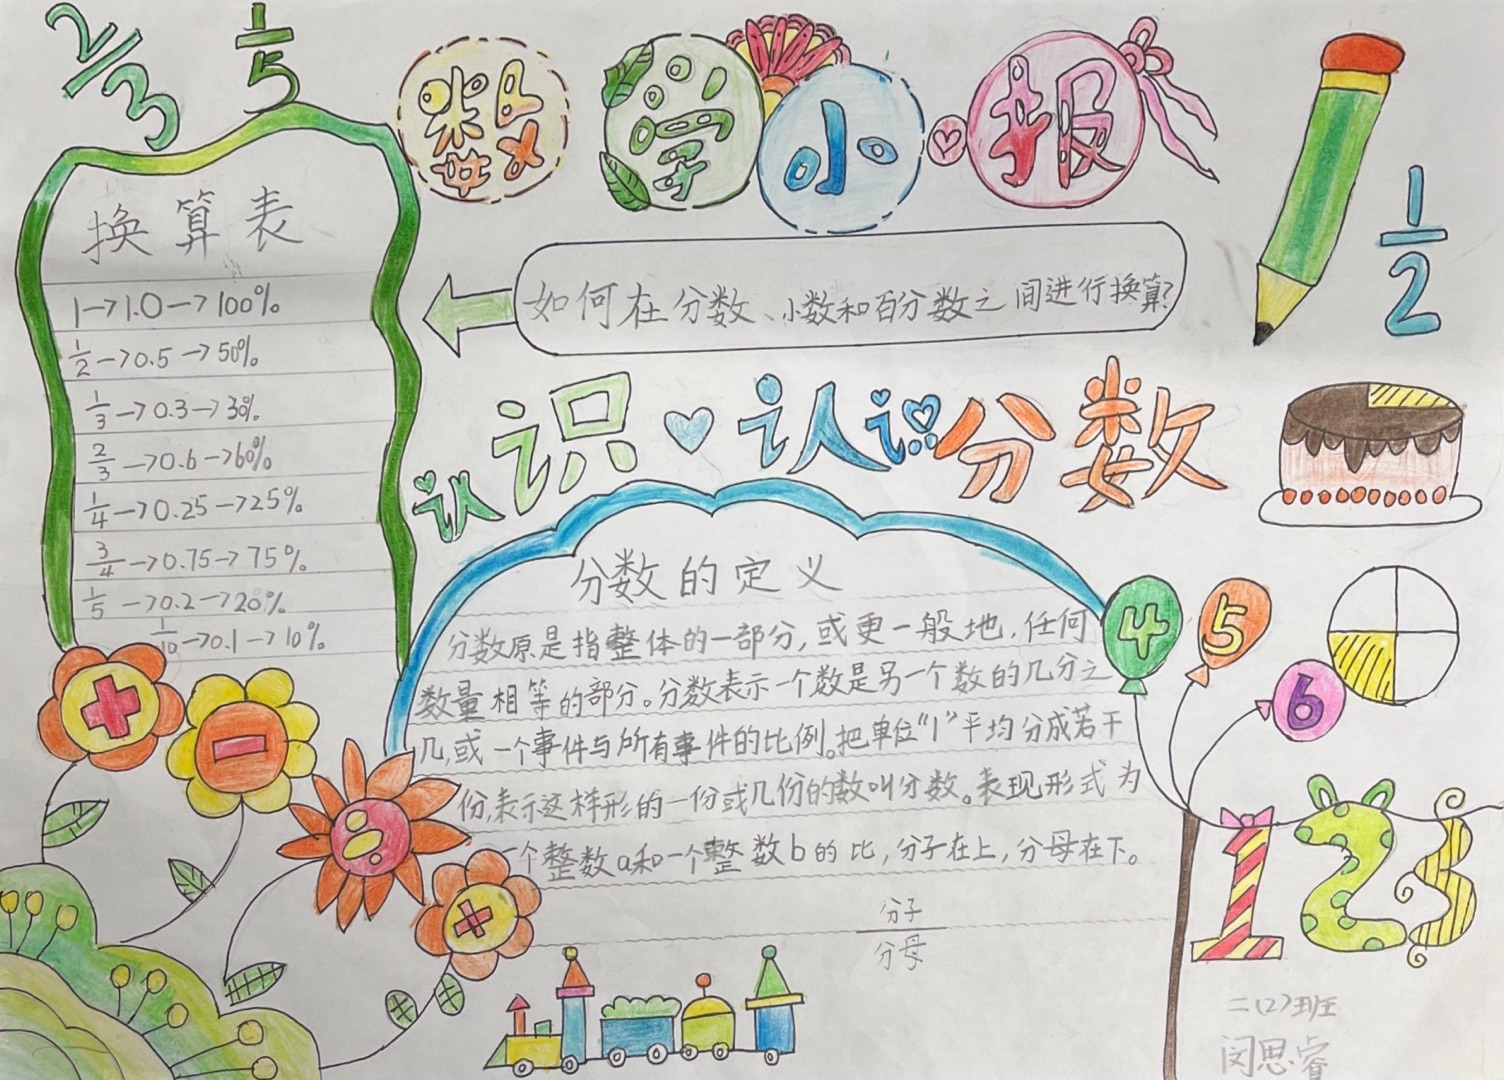 2/3
1/5
数学小报
1/2
换算表
1→1.0→100%
1/2→0.5→50%
1/3→0.3→30%
2/3→0.6→60%
1/4→0.25→25%
3/4→0.75→75%
1/5→0.2→20%
1/10→0.1→10%
如何在分数、小数和百分数之间进行换算?
认识认识分数
分数的定义
分数原是指整体的一部分,或更一般地,任何
数量相等的部分。分数表示一个数是另一个数的几分之
几,或一个事件与所有事件的比例。把单位“1”平均分成若干
份,表示这样形的一份或几份的数叫分数。表现形式为
一个整数a和一个整数b的比,分子在上,分母在下。
分子
分母
4
5
6
+
-
÷
×
1 2 3
二(2)班
闵思睿